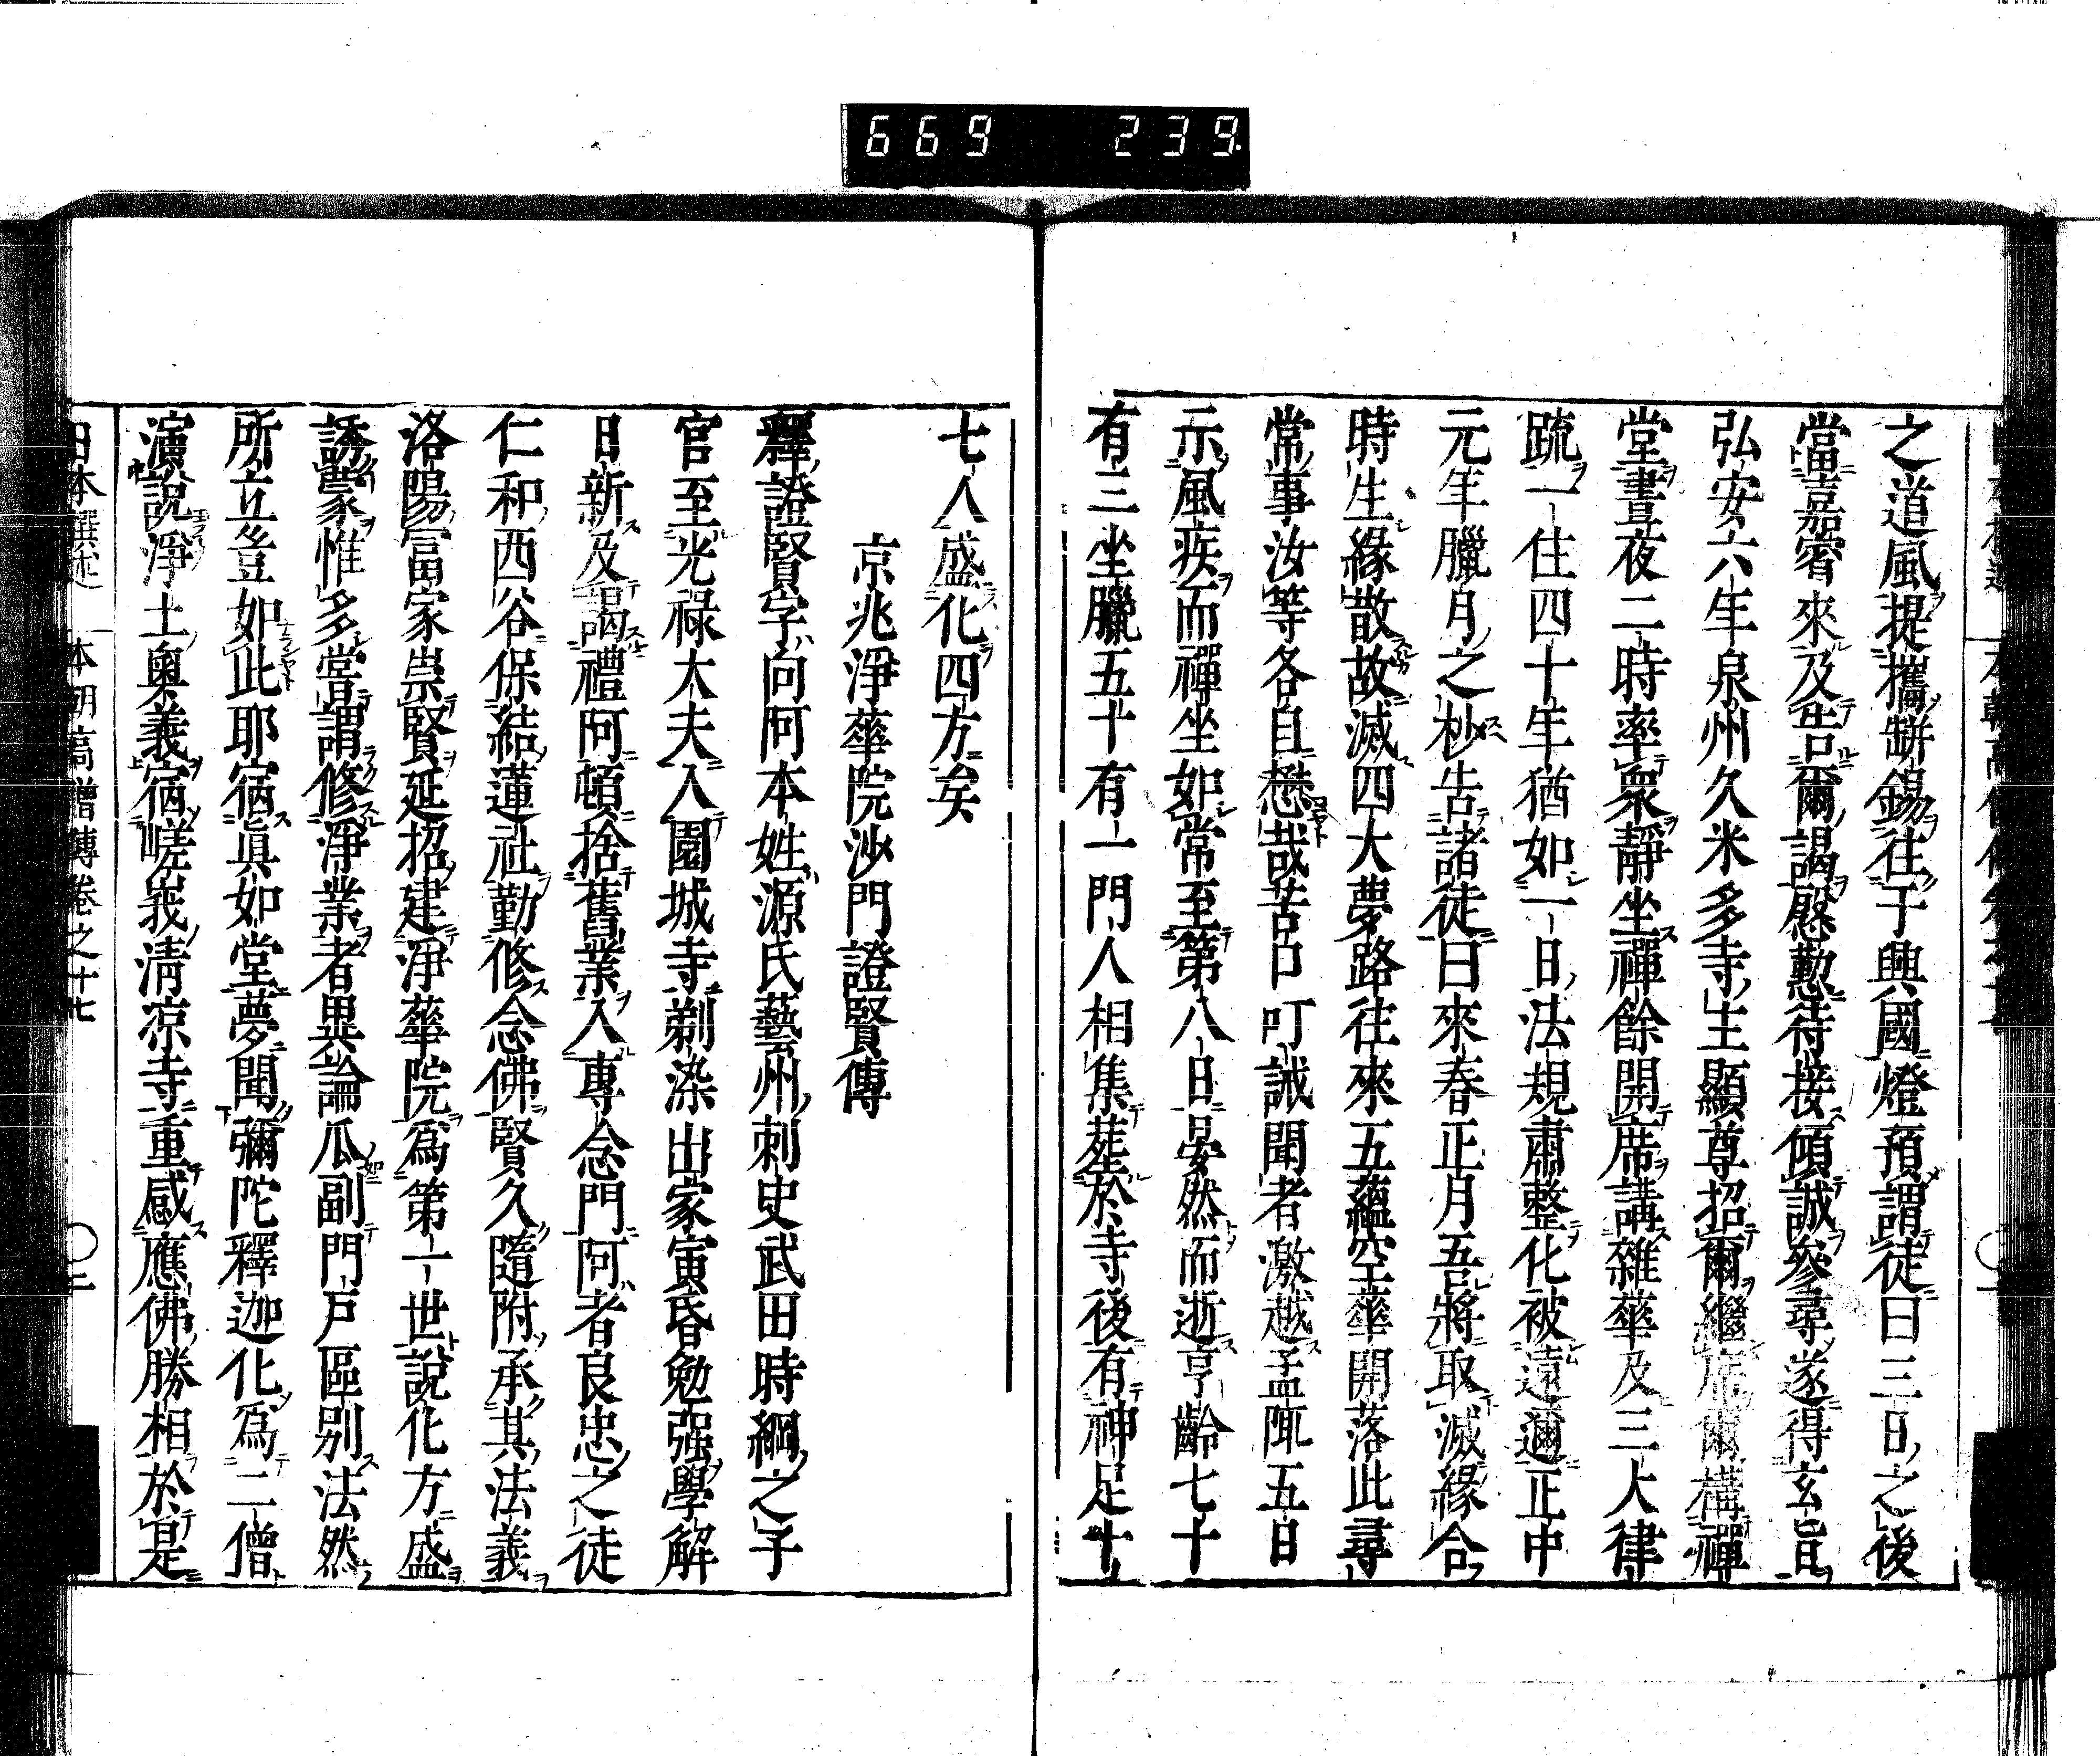 669 239
之道風提攜缾錫往于興國燈預謂徒曰三日之後
當嘉賓來及告爾謁慇懃待接傾誠參尋遂得玄旨
弘安六年泉州久米多寺主顯尊招爾繼席爾構禪
堂晝夜二時率衆靜坐禪餘開席講雜華及三大律
疏一住四十年猶如一日法規肅整化被遠邇正中
元年臘月之杪告諸徒曰來春正月吾將取滅緣合
時生緣散故滅四大夢路往來五蘊空華開落此尋
常事汝等各自懋哉苦口叮誡聞者激越孟陬五日
示風疾而禪坐如常至第八日晏然而逝享齡七十
有三坐臘五十有一門人相集塟於寺後有神足十
七人盛化四方矣
京兆淨華院沙門證賢傳
釋證賢字向阿本姓源氏藝州刺史武田時綱之子
官至光祿大夫入園城寺剃染出家寅昏勉强學解
日新及謁禮阿頓捨舊業入專念門阿者良忠之徒
仁和西谷保結蓮社勤修念佛賢久隨附承其法義
洛陽冨家崇賢延招建淨華院爲第一世說化方盛
誘蒙惟多嘗謂修淨業者異論瓜副門戶區別法然
所立豈如此耶宿眞如堂夢聞彌陀釋迦化爲二僧
演說淨土奧義宿嵯峩淸凉寺重感應佛勝相於是
日本撰述 本朝高僧傳卷之十七 〇二